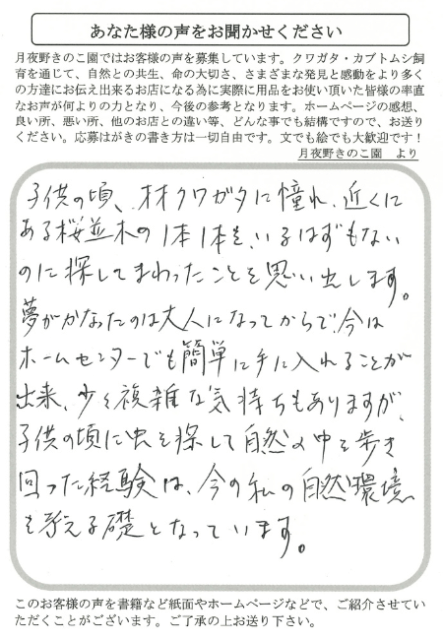 あなた様の声をお聞かせください
月夜野きのこ園ではお客様の声を募集しています。クワガタ・カブトムシ飼
育を通じて、自然との共生、命の大切さ、さまざまな発見と感動をより多く
の方達にお伝え出来るお店になる為に実際に用品をお使い頂いた皆様の率直
なお声が何よりの力となり、今後の参考となります。ホームページの感想、
良い所、悪い所、他のお店との違い等、どんな事でも結構ですので、お送り
ください。応募はがきの書き方は一切自由です。文でも絵でも大歓迎です！
月夜野きのこ園　より
子供の頃、オオクワガタに憧れ、近くに
ある桜並木の1本1本を、いるはずもない
のに探してまわったことを思い出します。
夢がかなったのは大人になってからで、今は
ホームセンターでも簡単に手に入れることが
出来、少々複雑な気持ちもありますが、
子供の頃に虫を探して自然の中を歩き
回った経験は、今の私の自然環境
を考える礎となっています。
このお客様の声を書籍など紙面やホームページなどで、ご紹介させてい
ただくことがございます。ご了承の上お送り下さい。